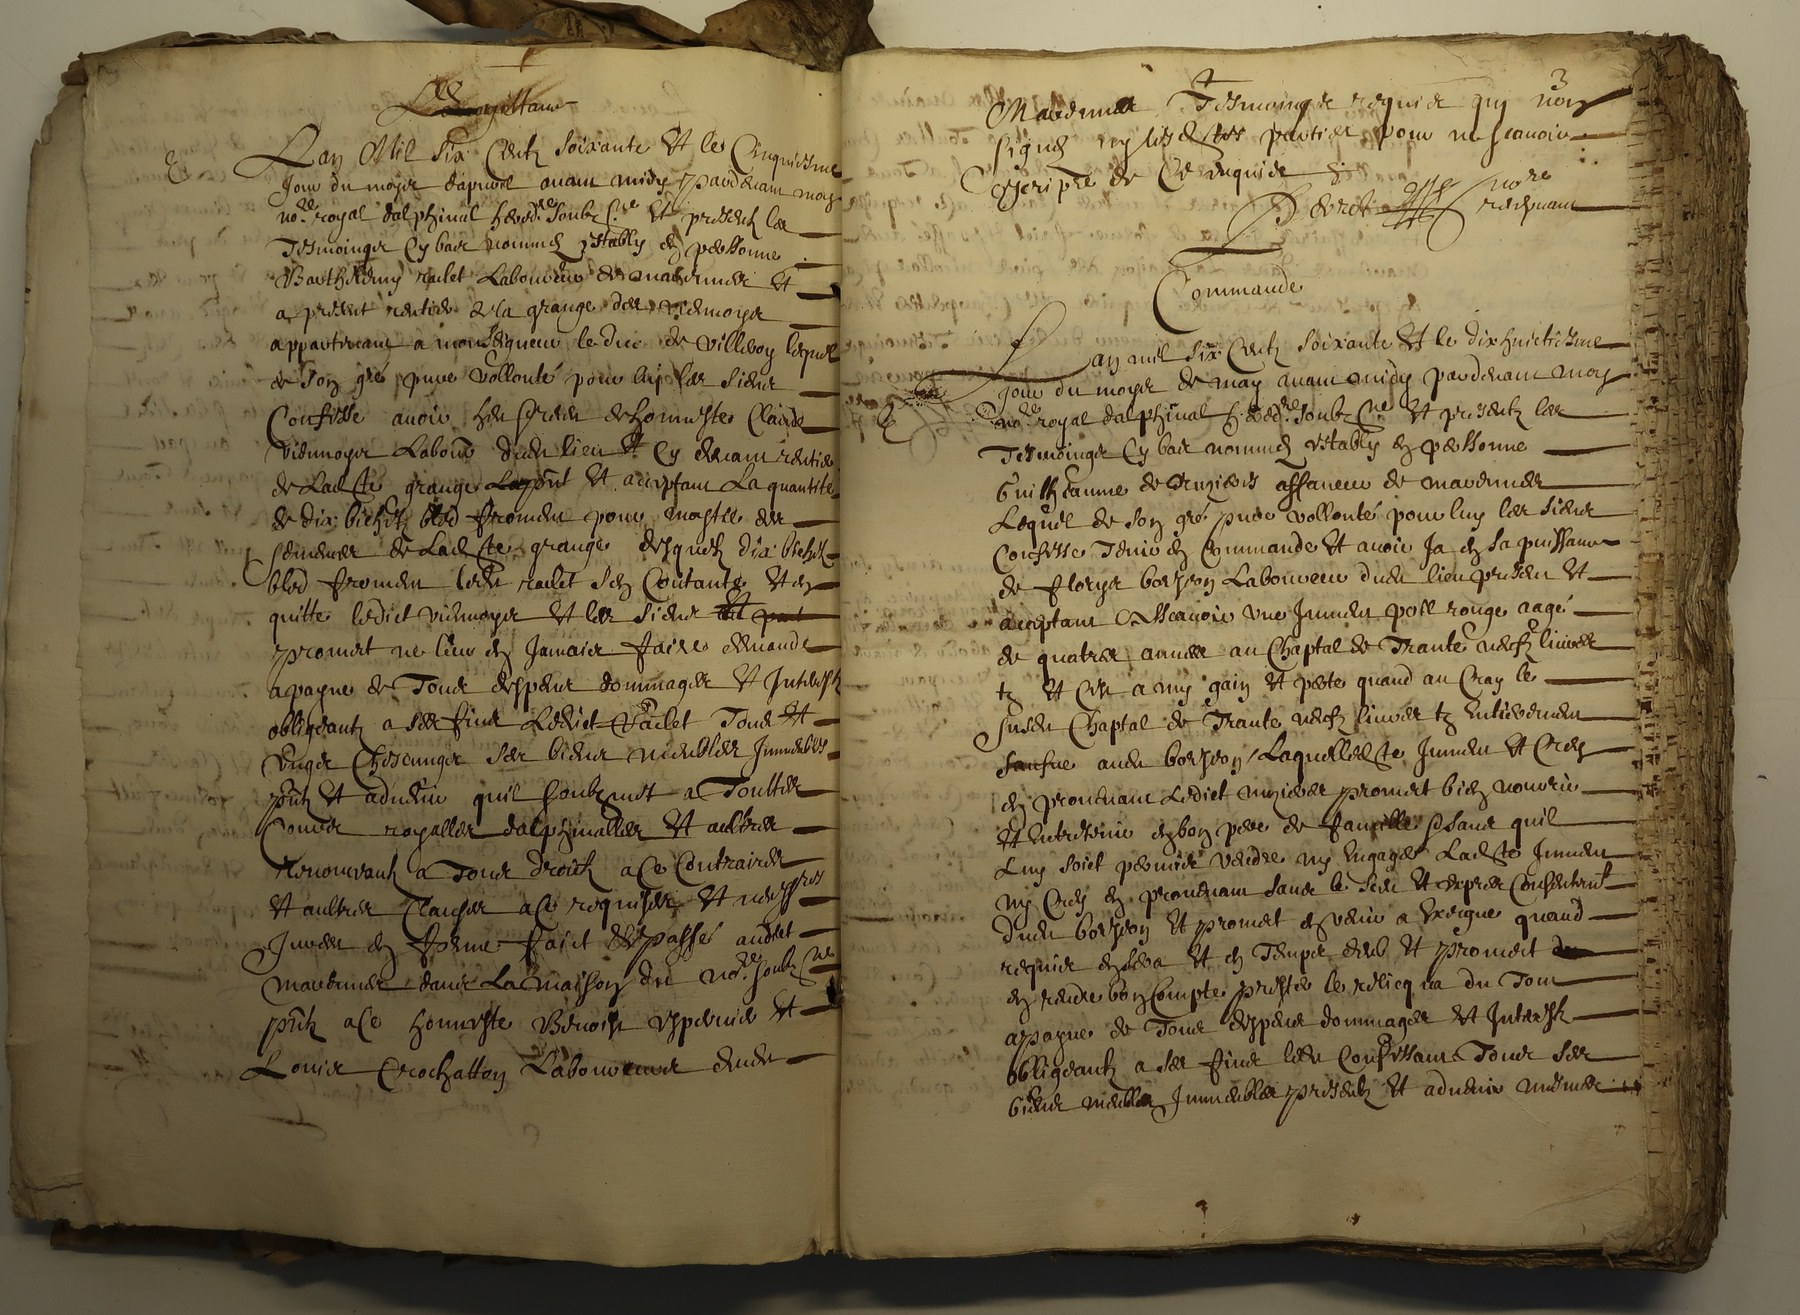 Quittance
L'an Mil six Centz soixante et le Cinquiesme
Jour du moys d'apvril avant midy pardevant moy
no.re royal dalphinal hered.re soubz.ne et presentz les
Tesmoingz Cy bas nommez estably en personne
Barthelemy raclet Laboureur de
a present rentier de la grange des viennoys
appartenant a monseigneur le duc de villeroy lequel
de son gré pure vollonté pour luy les siens
Confesse avoir heu de honneste Claude
viennoys Labour dudit lieu et Cy devant rentier
de Ladicte grange et acceptant La quantité
de dix bichetz bled froment pour
semences de Ladicte grange desquelz dix bichetz
bled froment ledit raclet s'en Contante et en
quitte ledict viennoys et les siens
promet ne leur en Jamais faire demande
a payne de Tous despens dommages et Interestz
obligeantz a ses fins Ledict raclet Tous et
ses biens meubles Immeubles
pntz et advenir quil soubzmet a Touttes
Cours royalles dalphinalles et aultres
Renonceantz a Tous droictz a Ce Contraires
et aultres Clauses a Ce requises et necess.res
en forme faict et passé audict
dans La maison du no.re soubz.ne
pntz a Ce honneste Benoist et
Louis Crochatton Laboureurs dudit
3
Tesmoingz requis quy n'ont
signé ny lesdites parties pour ne scavoir
escripre de Ce enquis
no.re
recepvant
Commande
L'an mil six Centz soixante et le dixhuictiesme
jour du moys de may avant midy pardevant moy
no.re royal dalphinal hered.re soubz.ne et presentz les
Tesmoingz Cy bas nommez estably en personne
affaneur de
Lequel de son gré pure vollonté pour luy les siens
Confesse Tenir en Commande et avoir Ja en sa puissance
de Laboureur dudit lieu present et
acceptant Ascavoir une Jument poil rouge aagé
de quatres annees au Chaptal de Trante neufz livres
tz et Ce a my gain et perte quand au Cray le
susdit Chaptal de Trante neufz livres tz entierement
audit Laquelle dicte Jument et Crey
en provenant Ledict promet bien nourir
et entretenir en bon pere de famille sans quil
Luy soict permis vendre ny engager Ladicte Jument
ny Crey en provenant sans le sceu et expres Consentement
dudit et promet en venir a exeigue quand
requis en sera et en Temps deub et promet
en rendre bon Compte prester le relicqua du Tout
a payne de Tous despens dommages et Interestz
obligeantz a ses fins ledit Confessant Tous ses
biens meubles Immeubles presentz et advenir mesmes